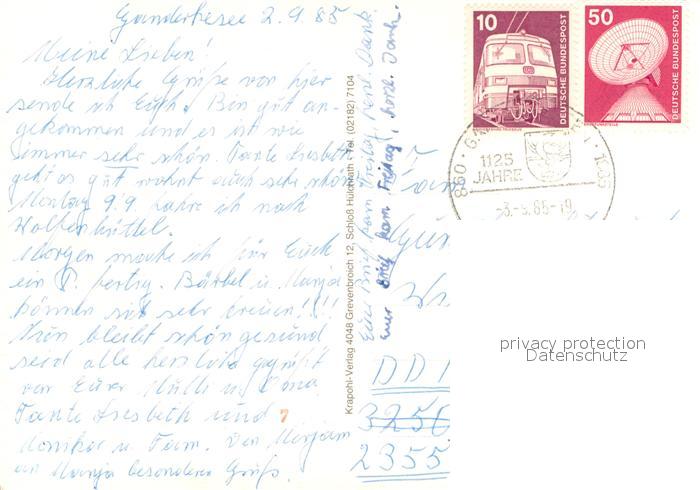 Ganderkesee 2.9.85
Meine Lieben!
Herzliche Grüße von hier
sende ich Euch. Bin gut an-
gekommen und es ist wie
immer sehr schön. Tante Liesbeth
geht es gut wohnt auch sehr schön
Montag 9.9 fahre ich nach
Wolfenbüttel.
Morgen mache ich für Euch
ein P. fertig. Bärbel u. Manja
können sich sehr freuen!!!
Nun bleibt schön gesund
seid alle herzlich gegrüßt
von Eurer Mutti u. Oma
Tante Liesbeth und
Monika u. Fam. Den Mirjam
an Manja besonderen Gruß.
7
Krapohl-Verlag 4048 Grevenbroich 12, Schloß Hülchrath · Tel. (02182) 7104
Euer Brief kam Freitag, herzl. Dank.
Euer Brief kam Freitag, herzl. Dank.
10
DEUTSCHE BUNDESPOST
50
DEUTSCHE BUNDESPOST
1125
JAHRE
Fam
DD
3250
2355
privacy protection
Datenschutz